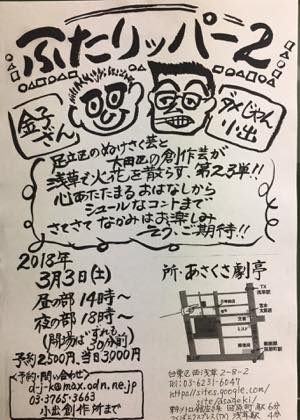 ふたリッパー2
金子ざん
ダメじゃん小出
足立区のぬけさく芸と
大田区の創作芸が
浅草で火花を散らす、第2弾!!
心あたたまるおはなしから
シュールなコントまで
さてさてなかみはお楽しみ
こう、ご期待!!
2018年
3月3日(土)
昼の部 14時〜
夜の部 18時〜
(開場はいずれも30分前)
予約2,500円、当日3,000円
<予約・問い合わせ>
d-j-k@max.odn.ne.jp
03-3765-3663
小出創作所まで
所・あさくさ劇亭
台東区西浅草2-8-2
TEL:03-6231-6047
https://sites.google.com/
site/asageki/